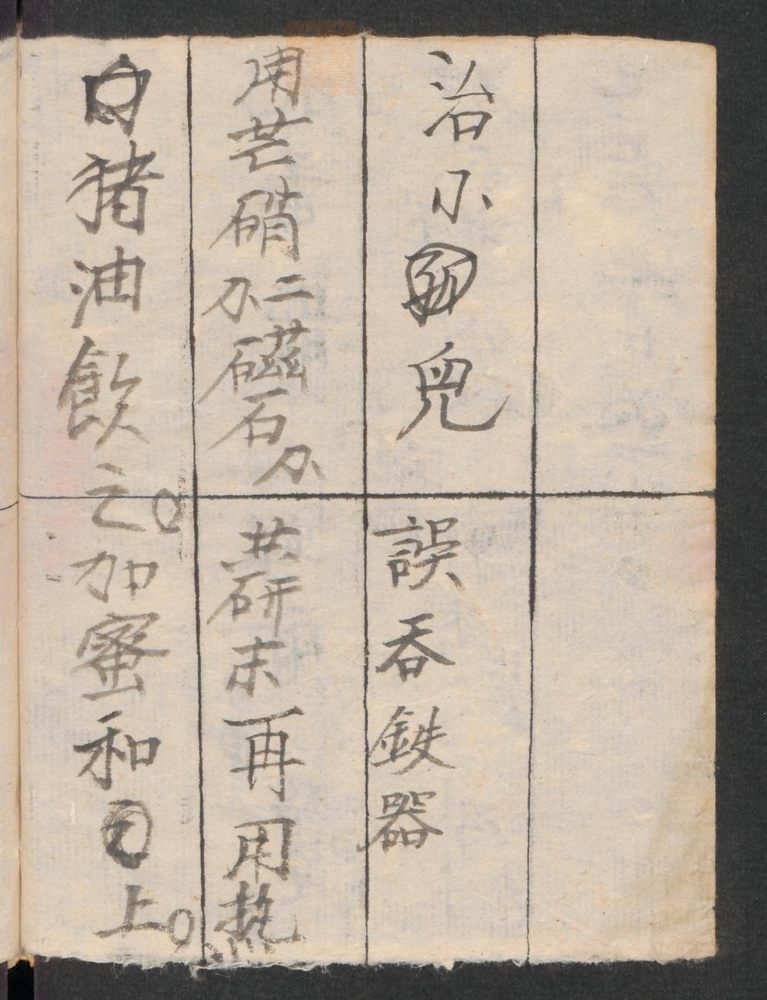 治小兒誤吞鉄器
用芒硝二刄磁石刄共研末再用热
猪油飲之加蜜和上